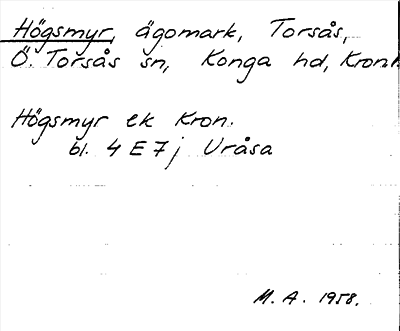 Högsmyr, ägomark, Torsås,
Ö. Torsås sn, Konga hd, Kron
Högsmyr ek Kron.
bl. 4 E 7 j Uråsa
M. A. 1958.